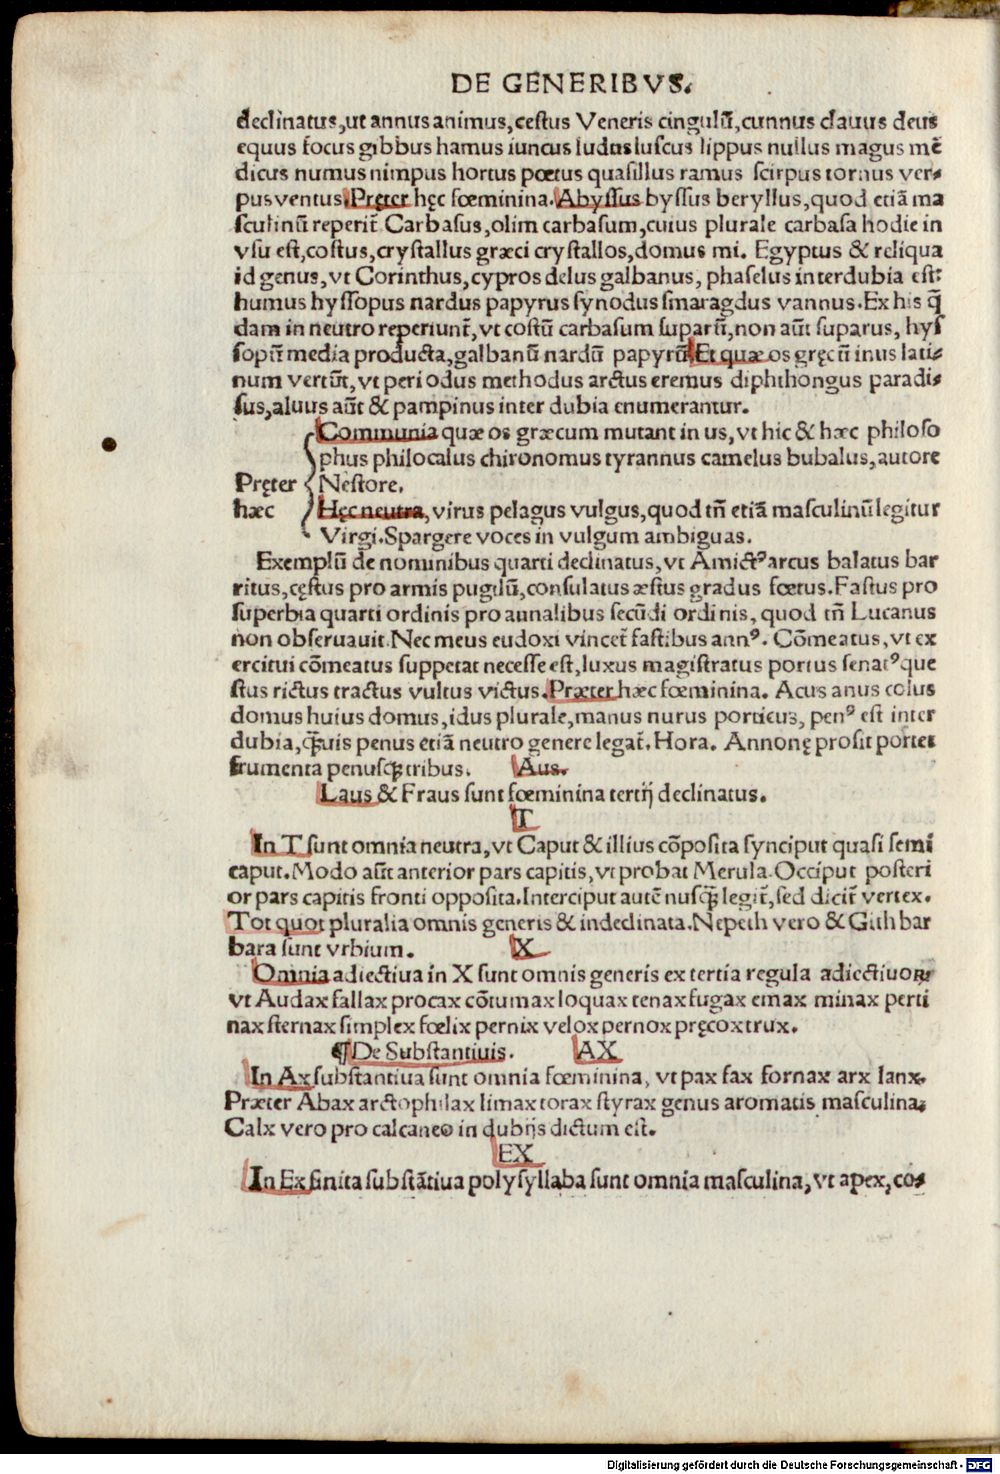 DE GENERIBVS.
declinatus,ut annus animus,cestus Veneris cingulū,cunnus clauus deus
equus focus gibbus hamus iuncus ludus luscus lippus nullus magus mē
dicus numus nimpus hortus pœtus quasillus ramus scirpus tornus ver-
pus ventus.Pręter hęc fœminina.Abyssus byssus beryllus,quod etiā ma
sculinū reperit̄. Carbasus,olim carbasum,cuius plurale carbasa hodie in
vsu est,costus,crystallus græci crystallos,domus mi. Egyptus & reliqua
id genus,vt Corinthus,cypros delus galbanus, phaselus interdubia est:
humus hyssopus nardus papyrus synodus smaragdus vannus.Ex his q̄
dam in neutro reperiunt̄,vt costū carbasum suparū,non aūt suparus, hys
sopū media producta,galbanū nardū papyrū.Et quæ os gręcū inus lati-
num vertūt,vt periodus methodus arctus eremus diphthongus paradi-
sus,aluus aūt & pampinus inter dubia enumerantur.
Communia quæ os græcum mutant in us,vt hic & hæc philoso
phus philocalus chironomus tyrannus camelus bubalus,autore
Pręter Nestore.
hæc Hęc neutra,virus pelagus vulgus,quod tn̄ etiā masculinū legitur
Virgi.Spargere voces in vulgum ambiguas.
Exemplū de nominibus quarti declinatus,vt Amictꝰ arcus balatus bar
ritus,cęstus pro armis pugilū,consulatus æstus gradus fœtus.Fastus pro
superbia quarti ordinis pro annalibus secūdi ordinis, quod tn̄ Lucanus
non obseruauit.Nec meus eudoxi vincet̄ fastibus annꝰ. Cōmeatus,vt ex
ercitui cōmeatus suppetat necesse est,luxus magistratus portus senatꝰ que
stus rictus tractus vultus victus.Præter hæc fœminina. Acus anus colus
domus huius domus,idus plurale,manus nurus porticus, penꝰ est inter
dubia,q̄uis penus etiā neutro genere legat̄.Hora. Annonę prosit portet
frumenta penusq̄ tribus. Aus.
Laus & Fraus sunt fœminina tertij declinatus.
T
In T sunt omnia neutra,vt Caput & illius cōposita synciput quasi semi
caput.Modo aūt anterior pars capitis,vt probat Merula.Occiput posteri
or pars capitis fronti opposita.Interciput autē nusq̄ legit̄,sed dicit̄ vertex.
Tot quot pluralia omnis generis & indeclinata.Nepeth vero & Gith bar
bara sunt vrbium. X
Omnia adiectiua in X sunt omnis generis ex tertia regula adiectiuoꝝ
vt Audax fallax procax cōtumax loquax tenax fugax emax minax perti
nax sternax simplex fœlix pernix velox pernox pręcox trux.
¶De Substantiuis. AX
In Ax substantiua sunt omnia fœminina, vt pax fax fornax arx lanx.
Præter Abax arctophilax limax torax styrax genus aromatis masculina.
Calx vero pro calcaneo in dubijs dictum est.
EX
In Ex finita substātiua polysyllaba sunt omnia masculina,vt apex,co-
Digitalisierung gefördert durch die Deutsche Forschungsgemeinschaft - DFG